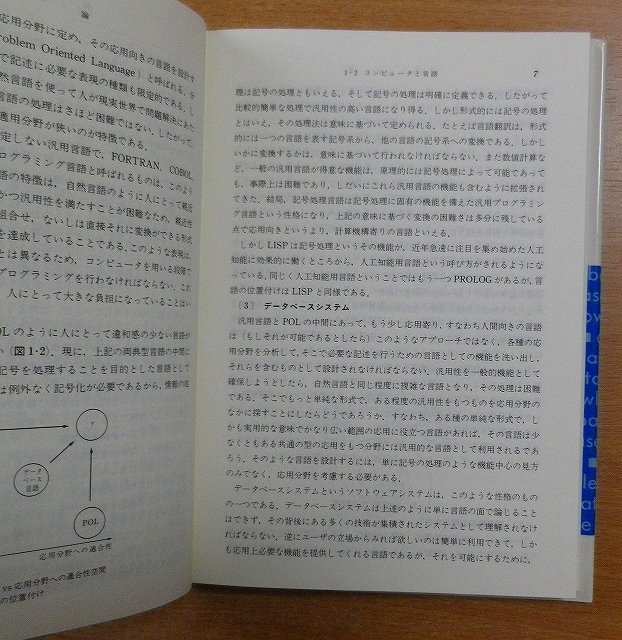 論
応用分野に定め，その応用向きの言語を設計す
roblem Oriented Language）と呼ばれる．分
で記述に必要な表現の種類も限定的である．し
然言語を使って人が現実世界で問題解決にあた
言語の処理はさほど困難ではない．したがって，
適用分野が狭いのが特徴である．
定しない汎用言語で，FORTRAN，COBOL
ログラミング言語と呼ばれるものは，このよう
語の特徴は，自然言語のように人にとって親近
かつ汎用性を満たすことが困難なため，親近性
組合せ，ないしは直接それに変換ができる形式
を達成していることである．このような表現は，
とは異なるため，コンピュータを用いる段階で
プログラミングを行わなければならない．これ
人にとって大きな負担になっていることはい
OLのように人にとって違和感の少ない言語が
い（図1・2）．現に，上記の両典型言語の中間に
記号を処理することを目的とした言語として
は例外なく記号化が必要であるから，情報の処
?
データ
ベース
言語
POL
応用分野への適合性
vs 応用分野への適合性空間
の位置付け
1・2 コンピュータと言語
7
理は記号の処理ともいえる．そして記号の処理は明確に定義できる．したがって
比較的簡単な処理で汎用性の高い言語になり得る．しかし形式的には記号の処理
とはいえ，その処理法は意味に基づいて定められる．たとえば言語翻訳は，形式
的には一つの言語を表す記号系から，他の言語の記号系への変換である．しかし
いかに変換するかは，意味に基づいて行われなければならない．また数値計算な
ど，一般の汎用言語が得意な機能は，原理的には記号処理によって可能であって
も，事際上は困難であり，しだいにこれら汎用言語の機能も含むように拡張され
てきた．結局，記号処理言語は記号処理に固有の機能を備えた汎用プログラミン
グ言語という性格になり，上記の意味に基づく変換の困難さは多分に残している
点で応用向きというより，計算機寄りの言語といえる．
しかしLISPは記号処理というその機能が，近年急速に注目を集め始めた人工
知能に効果的に働くところから，人工知能用言語という呼び方がされるようにな
っている．同じく人工知能用言語ということではもう一つPROLOGがあるが，言
語の位置付けはLISPと同様である．
〔3〕 データベースシステム
汎用言語とPOLの中間にあって，もう少し応用寄り，すなわち人間向きの言語
は（もしそれが可能であるとしたら）このようなアプローチではなく，各種の応
用分野を分析して，そこで必要な記述を行うための言語としての機能を洗い出し，
それらを含むものとして設計されなければならない．汎用性を一般的機能として
確保しようとしたら，自然言語と同じ程度に複雑な言語となり，その処理は困難
である．そこでもっと単純な形式で，ある程度の汎用性をもつものを応用分野の
なかに探すことにしたらどうであろうか．すなわち，ある種の単純な形式で，し
かも実用的な意味でかなり広い範囲の応用に役立つ言語があれば，その言語は少
なくともある共通の型の応用をもつ分野には汎用的な言語として利用されるであ
ろう．そのような言語を設計するには，単に記号の処理のような機能中心の見方
のみでなく，応用分野を考慮する必要がある．
データベースシステムというソフトウェアシステムは，このような性格のもの
の一つである．データベースシステムは上述のように単に言語の面で論じること
はできず，その背後にある多くの技術が集積されたシステムとして理解されなけ
ればならない．逆にユーザの立場からみれば欲しいのは簡単に利用できて，しか
も応用上必要な機能を提供してくれる言語であるが，それを可能にするために，